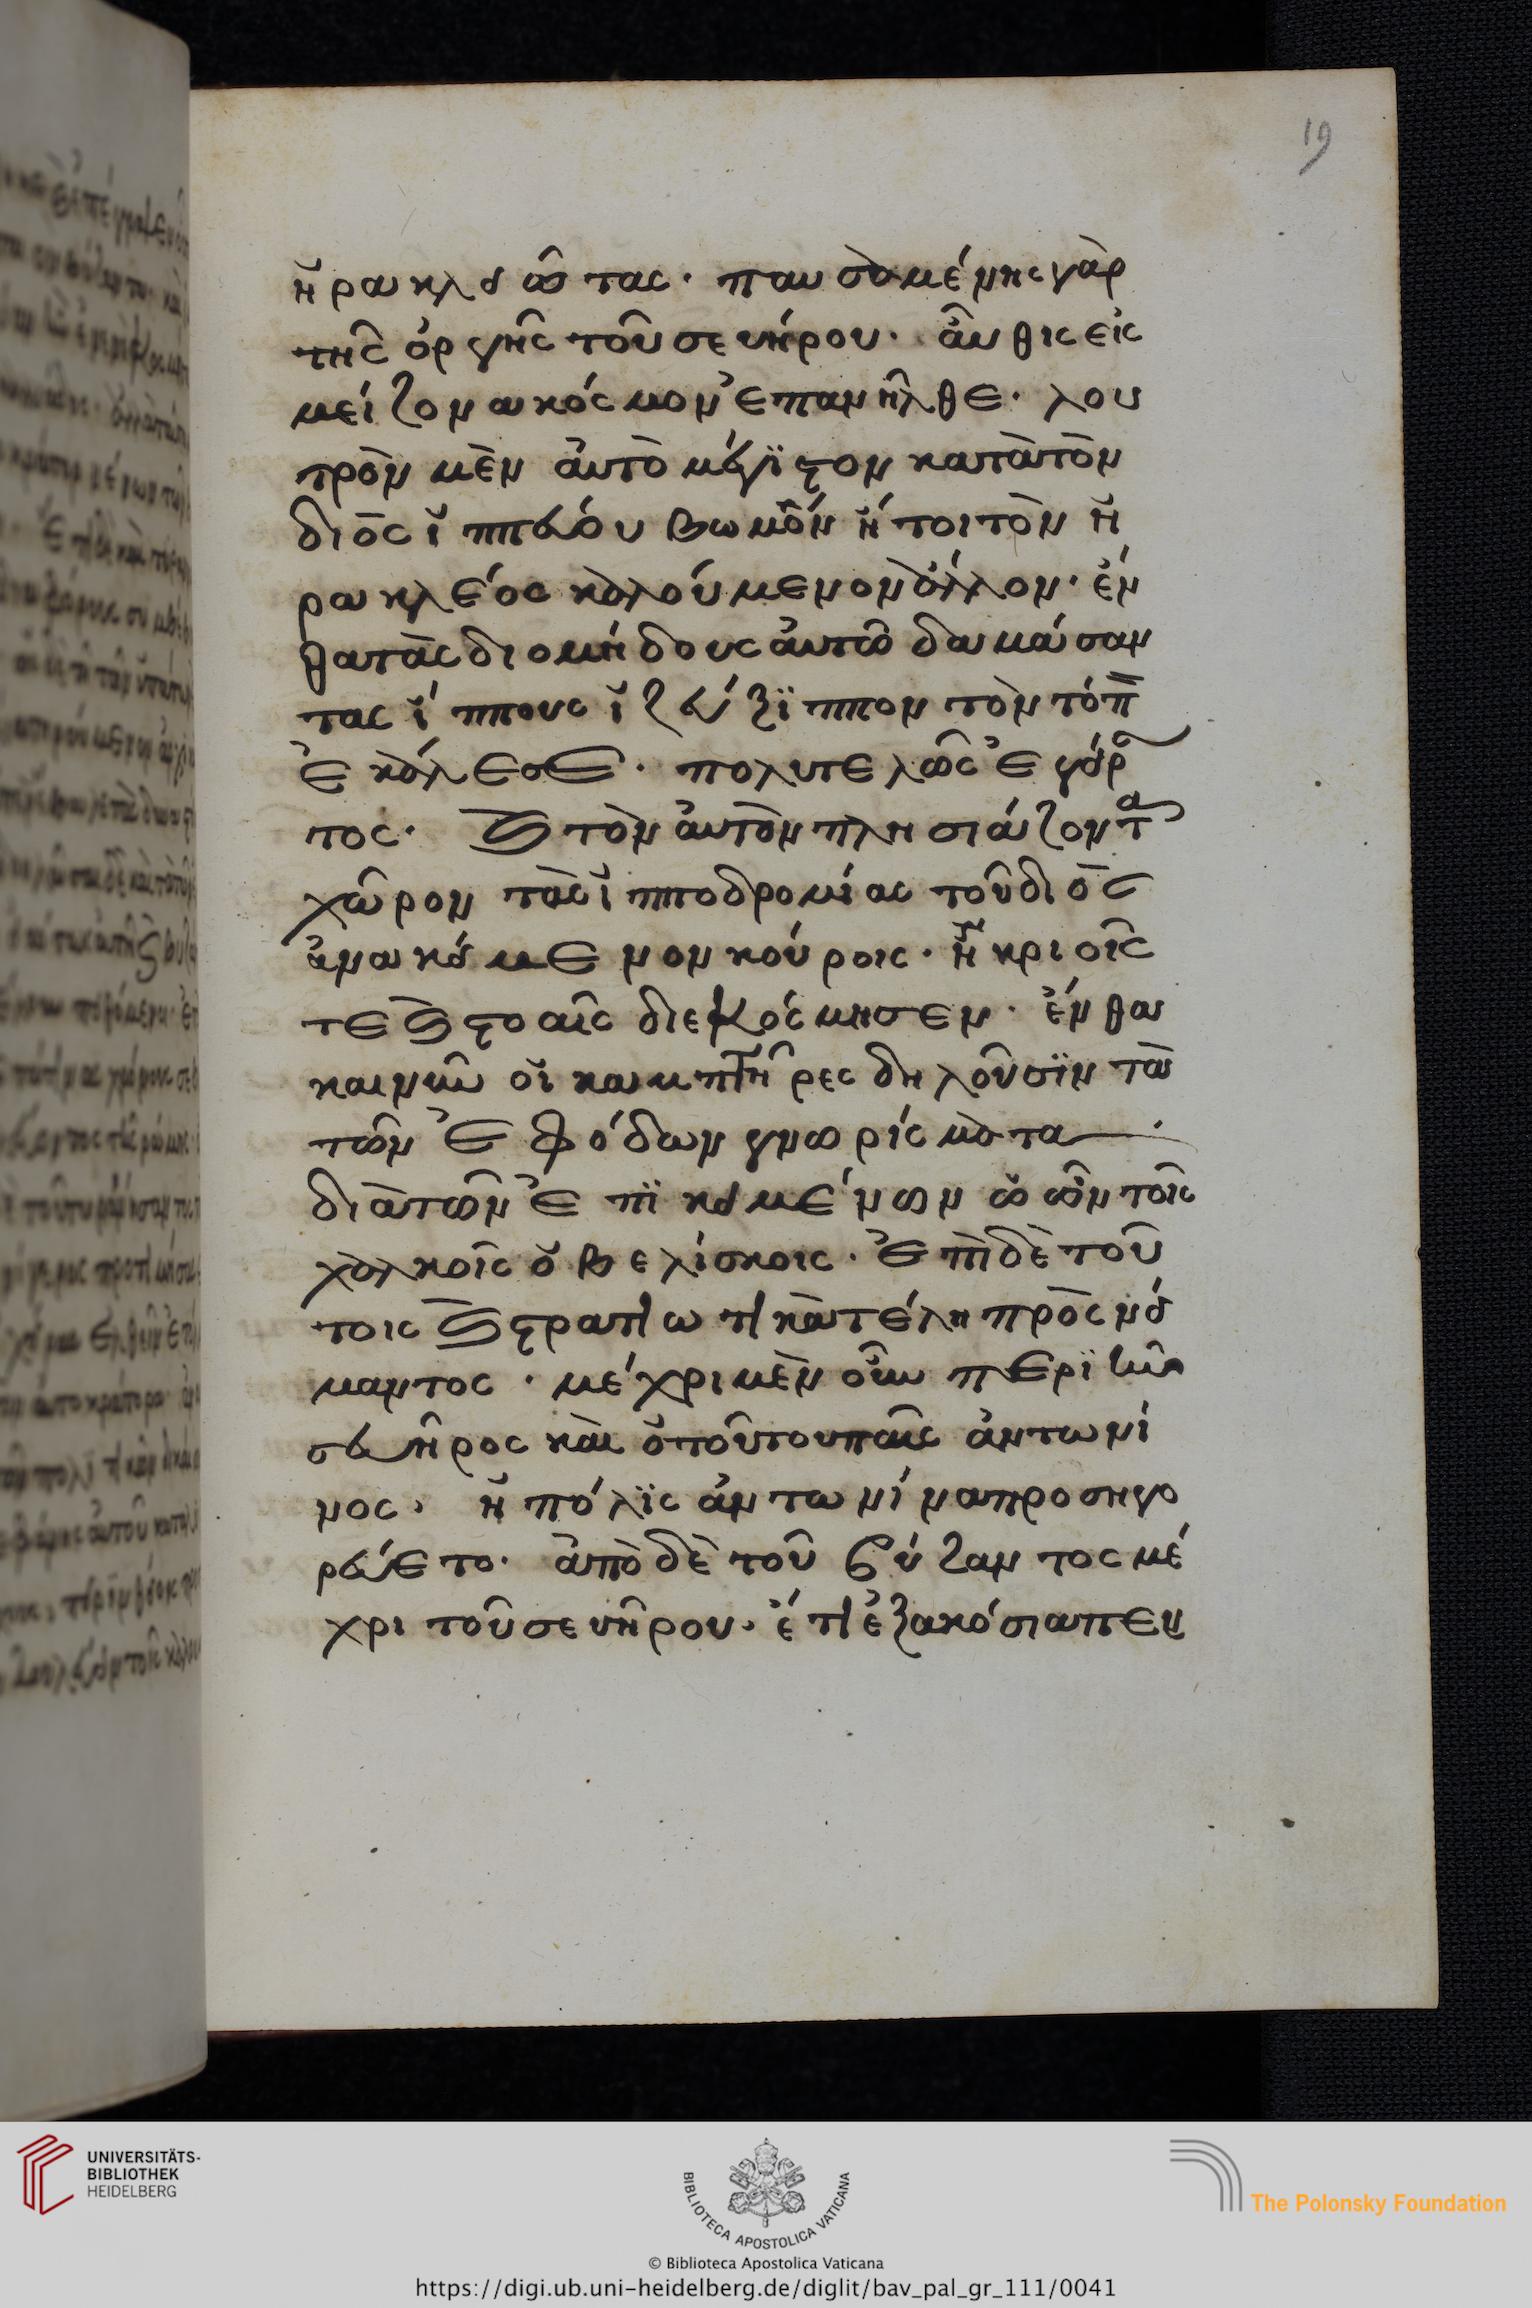 19
ἡρακλειώτας· παυσαμένης γὰρ
τῆς ὀργῆς τοῦ σευήρου· αὖθις εἰς
μείζονα κόσμον ἐπανῆλθε· λου
τρὸν μὲν αὐτὸ μέγιστον κατὰ τὸν
διὸς ἱππείου βωμὸν ἤτοι τὸν ἡ
ρακλέος καλούμενον ἄλλον· ἔν
θα τὰς διομήδους αὐτῶ δαμάσαν
τας ἵππους ἱζεύξιππον τὸν τόπ
ἐκάλεσε· πολυτελῶς ἐγείρ
τος· καὶ τὸν αὐτὸν πλησιάζοντα
χῶρον τὰς ἱπποδρομίας τοῦ διὸς
ἀνακείμενον κούροις· ἢ κριοῖς
τε καὶ στοαῖς διεκόσμησεν· ἔνθα
καὶ νῦν οἱ καμπτῆρες δηλοῦσιν τὰ
τῶν ἐφόδων γνωρίσματα
διὰ τῶν ἐπικειμένων ὠῶν τοῖς
χαλκοῖς ὀβελίσκοις· ἐπὶ δὲ τού
τοις καὶ στρατιωτικὰ τέλη προσνεί
μαντος· μέχρι μὲν οὖν περιῆν
σευῆρος καὶ ὁ τούτου παῖς ἀντωνί
νος· ἡ πόλις ἀντωνίνα προσηγο
ρεύετο· ἀπὸ δὲ τοῦ βύζαντος μέ
χρι τοῦ σευῆρου· ἔτι ἑξακόσια πεν
UNIVERSITÄTS-
BIBLIOTHEK
HEIDELBERG
BIBLIOTECA APOSTOLICA VATICANA
The Polonsky Foundation
© Biblioteca Apostolica Vaticana
https://digi.ub.uni-heidelberg.de/diglit/bav_pal_gr_111/0041